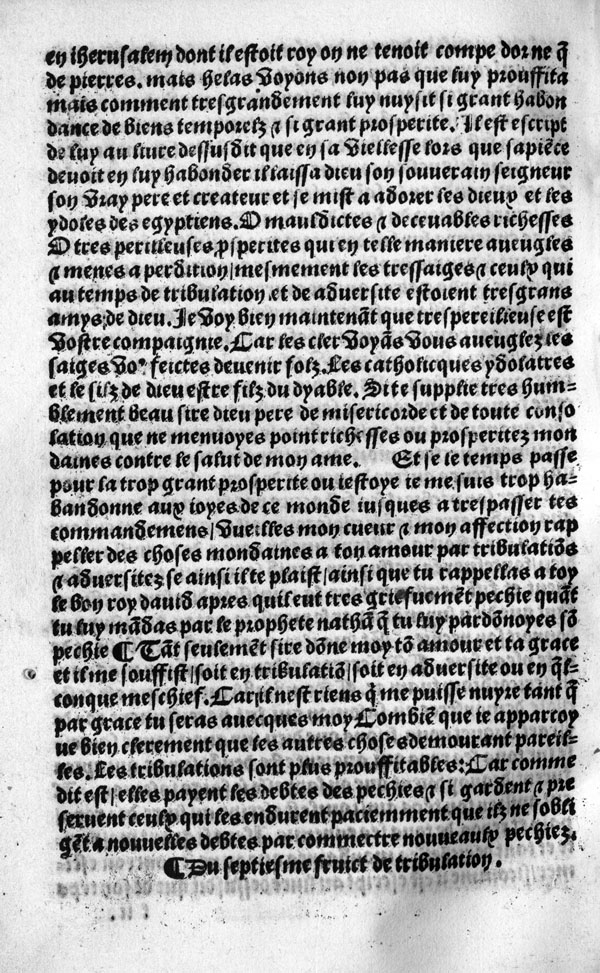 en iherusalem dont il estoit roy on ne tenoit compe dor ne q̃
de pierres. mais helas voyons non pas que luy prouffita
mais comment tresgrandement luy nuysit si grant habon
dance de biens temporelz ⁊ si grant prosperite. Il est escript
de luy au liure dessusdit que en sa viellesse lors que sapiẽce
devoit en luy habonder il laissa dieu son souuerain seigneur
son vray pere et createur et se mist a adorer les dieux et les
ydoles des egyptiens. O mauldictes ⁊ deceuables richesses
O tres perilleuses ꝓsperites qui en telle maniere aueugles
⁊ menes a perdition/mesmement les tressaiges ⁊ ceulx qui
au temps de tribulation et de aduersite estoient tresgrans
amys de dieu. Je voy bien maintenãt que trespereilieuse est
vostre compaignie. Car les cler voyãs vous aueuglez les
saiges voꝰ feictes deuenir folz. Les catholicques ydolatres
et le filz de dieu estre filz du dyable. Si te supplie tres hum-
blement beau sire dieu pere de misericorde et de toute conso
lation que ne menuoyes point richesses ou prosperitez mon
daines contre le salut de mon ame. Et se le temps passe
pour la trop grant prosperite ou iestoye ie me suis trop ha-
bandonne aux ioyes de ce monde iusques a trespasser tes
commandemens/vueilles mon cueur ⁊ mon affection rap
peller des choses mondaines a ton amour par tribulatiõs
⁊ aduersitez se ainsi il te plaist/ainsi que tu rappellas a toy
le bon roy dauid apres quil eut tres griefuemẽt pechie quãt
tu luy mãdas par le prophete nathã q̃ tu luy pardõnoyes sõ
pechie ¶ Tãt seulemẽt sire dõne moy tõ amour et ta grace
et il me souffist/soit en tribulatiõ/soit en aduersite ou en q̃l-
conque meschief. Car il nest riens q̃ me puisse nuyre tant q̃
par grace tu seras auecques moy Combiẽ que ie apparcoy
ue bien clerement que les autres choses demourant pareil-
les. Les tribulations sont plus prouffitables: Car comme
dit est/elles payent les debtes des pechies ⁊ si gardent ⁊ pre
seruent ceulx qui les endurent paciemment que ilz ne sobli
gẽt a nouuelles debtes par commectre nouueaulx pechiez.
¶ Du septiesme fruict de tribulation.